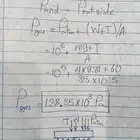 P_inside = P_outside
P_gas = P_atm + (W+f)/A
= 10⁵ + mg + f / A
= 10⁵ + 4×9.81+60 / 35×10⁻⁵
P_gas = 128,35×10³ Pa